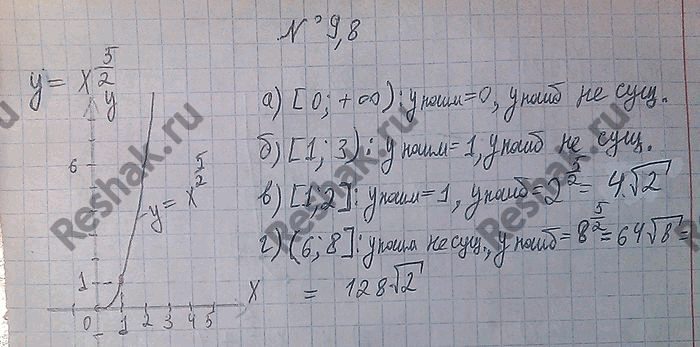 № 9,8
y = x^{5/2}
y
6
y = x^{5/2}
1
0 1 2 3 4 5
x
а) [0; +∞): y наим = 0, y наиб не сущ.
б) [1; 3): y наим = 1, y наиб не сущ.
в) [1; 2]: y наим = 1, y наиб = 2^{5/2} = 4√2
г) (6; 8]: y наим не сущ., y наиб = 8^{5/2} = 64√8 =
= 128√2
Reshak.ru
Reshak.ru
Reshak.ru